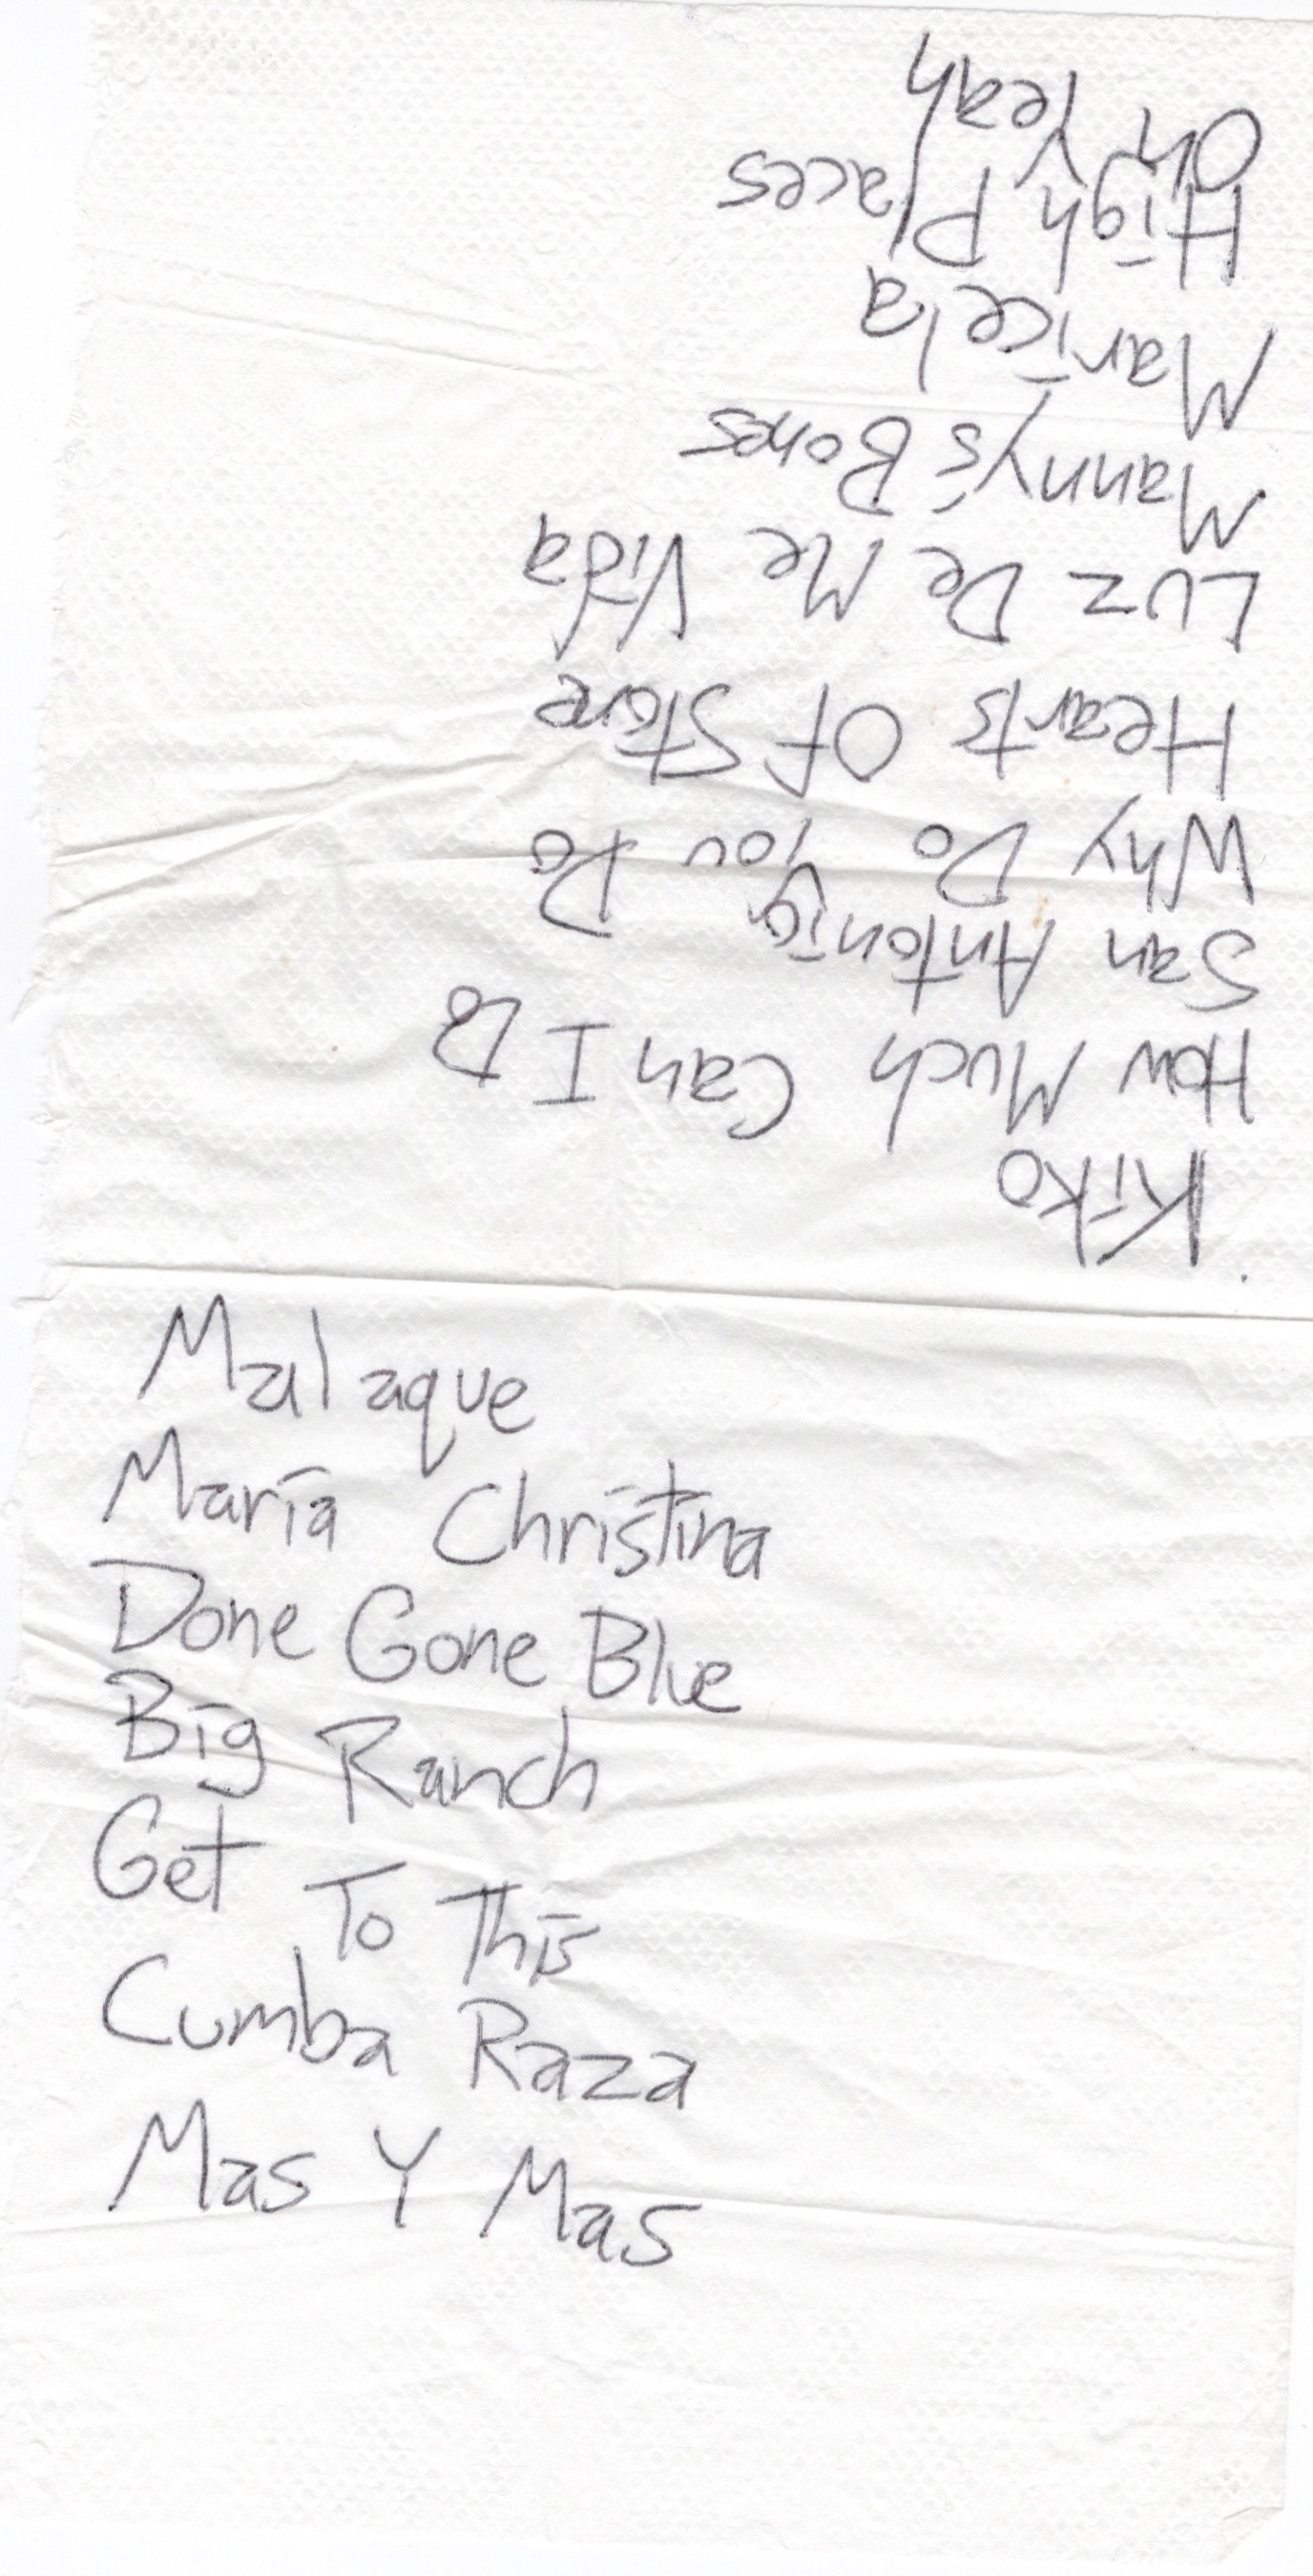 Kiko
How Much Can I Do
San Antonio
Why Do You Do
Hearts Of Stone
Luz De Me Vida
Manny's Bones
Maricela
High Places
Oh Yeah
Malaque
Maria Christina
Done Gone Blue
Big Ranch
Get To This
Cumba Raza
Mas Y Mas